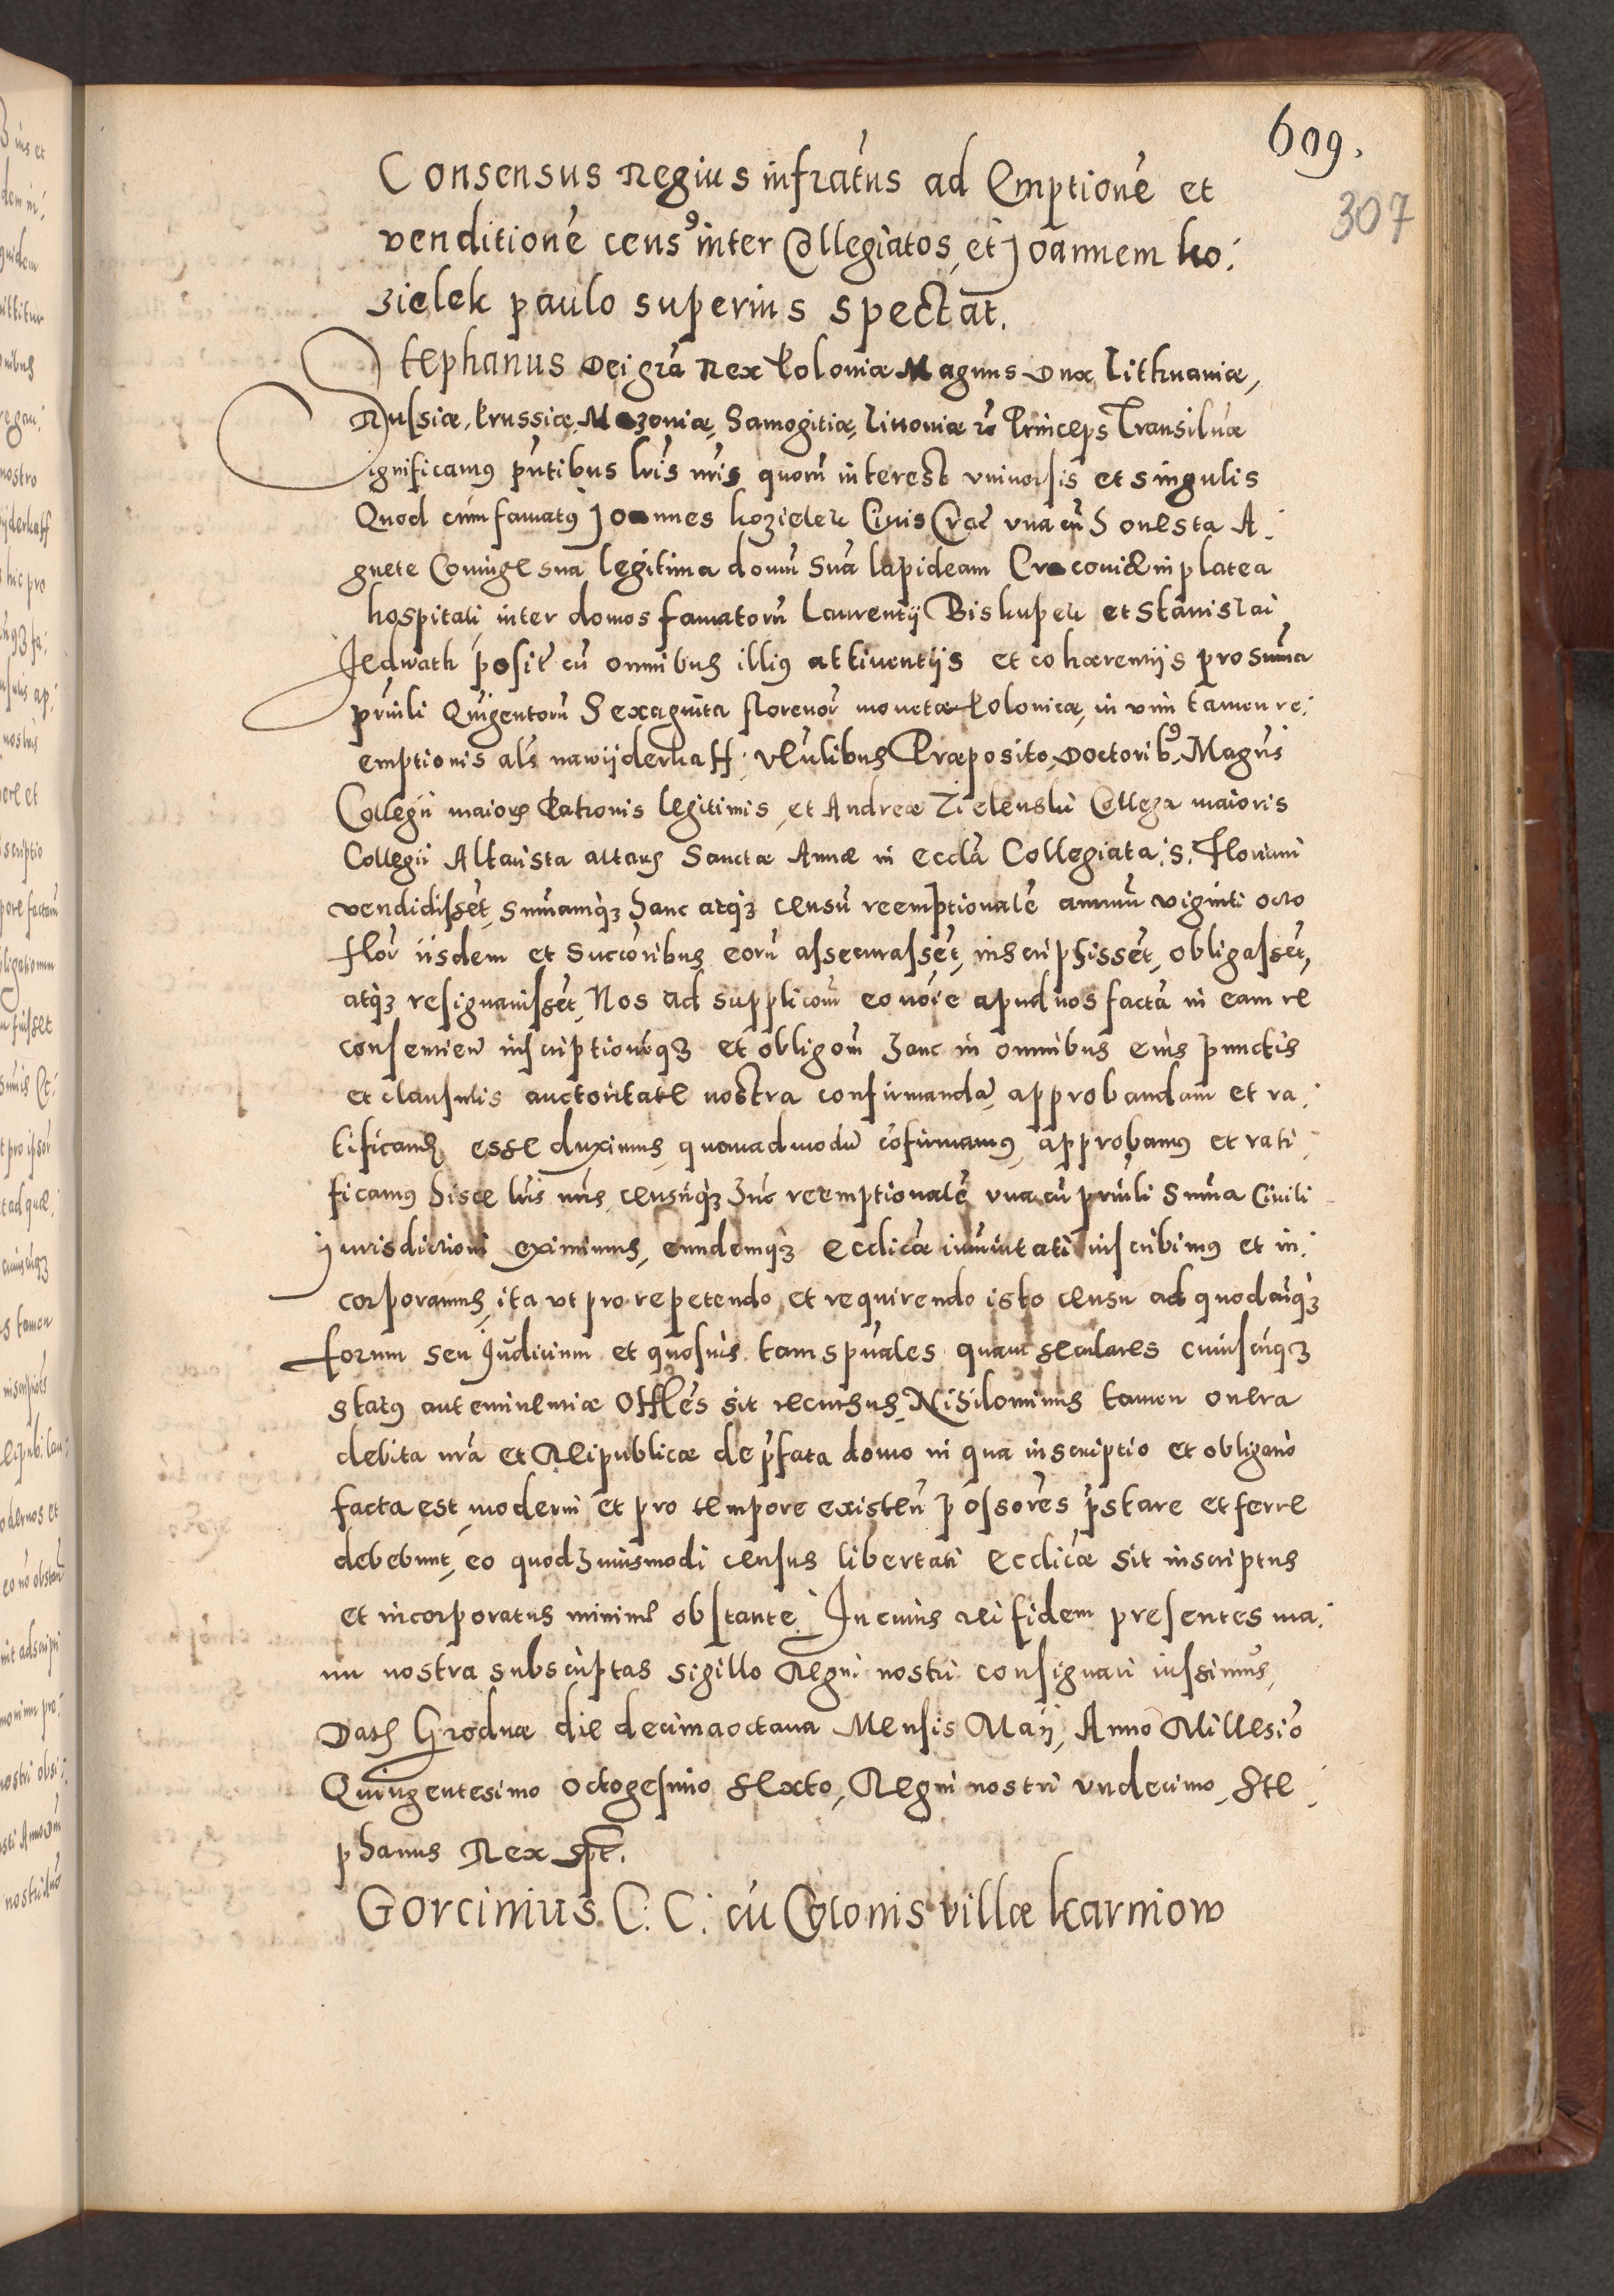 609.
307
Consensus Regius infratus ad Emptionē et
venditionē cens9 inter Collegiatos, et Joannem Ko:
zielek paulo superius spectat.
Stephanus Dei gra Rex Poloniæ Magnus Dux Lithuaniæ,
Russiæ, Prussiæ, Mazoniæ, Samogitiæ, Livoniæ rc Princeps Transiluæ
Significamus pntibus lris nris quorū interest vniuersis et singulis
Quod cum famatus Joannes Kozielek Ciuis Crac vna cū Honesta A:
gnete Coniuge sua legitima domū Suā lapideam Cracouiæ in platea
hospitali inter domos famatorū Laurentij Biskupek et Stanislai
Jedwath posit cū omnibus illius attinentijs et cohærentijs pro suma
prinli Quigentorū Sexaginta florenor monetæ Polonicæ, in vim tamen re:
emptionis als nawijderkaff. Vlulibus Præposito, Doctorib9, Magris
Collegii maioris Patronis legitimis, et Andreæ Zielenski Collega maioris
Collegii Altarista altaris Sanctæ Annæ in eccla Collegiata S. Floriani
vendidisset, Sumamq3 hanc atq3 censū reemptionalē annuū viginti octo
flor iisdem et Succoribus eorū assecurasset, inscripsisset, obligasset,
atq3 resignauisset, Nos ad supplicom eo noie apud nos facta in eam re
consentien inscriptionēq3 et obligom hanc in omnibus eius punctis
et clausulis auctoritate nostra confirmandā, approbandam et ra:
tificand esse duximus, quemadmodū cofirmamus, approbamus et rati:
ficamus hisce lris nris, censūq3 hūc reemptionalē vna cū prinli Suma Ciuili
Jurisdictioni eximimus, eundemq3 ecclicæ imunitati inscribimus et in:
corporamus, ita vt pro repetendo et requirendo isto censu ad quodcūq3
forum seu Judicium et quosuis tam spuales quam seculares cuiuscūq3
status aut eminentiæ Offles sit recursus, Nihilominus tamen onera
debita nra et Reipublicæ de pfata domo in qua inscriptio et obligatio
facta est, moderni et pro tempore existen possores pstare et ferre
debebunt, eo quod huiusmodi census libertati ecclicæ sit inscriptus
et incorporatus minime obstante. In cuius rei fidem presentes ma:
nu nostra subscriptas sigillo Regni nostri consignari iussimus,
Dat Grodnæ die decimaoctaua Mensis Maij, Anno Millesio
Quingentesimo octogesimo sexto, Regni nostri vndecimo, Ste:
phanus Rex spt.
Gorcinius C: C: cū Colonis villæ Karniow